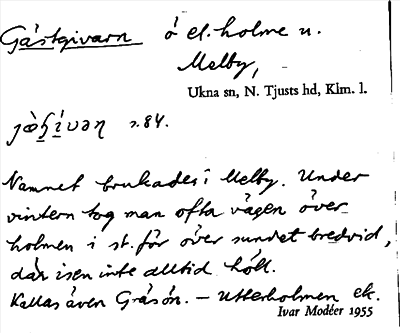 Gästgivarn ö el. holme u.
Melby,
Ukna sn, N. Tjusts hd, Klm. l.
s. 84.
Namnet brukades i Melby. Under
vintern tog man ofta vägen över
holmen i st. för över sundet bredvid,
där isen inte alltid höll.
Kallas även Gråsön. – Utterholmen ek.
Ivar Modéer 1955